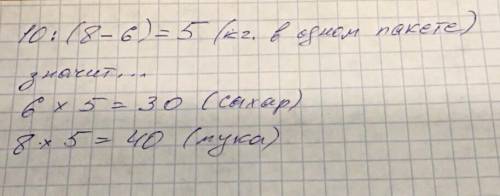 10 : (8 - 6) = 5 (кг. в одном пакете)
значит...
6 × 5 = 30 (сахар)
8 × 5 = 40 (мука)